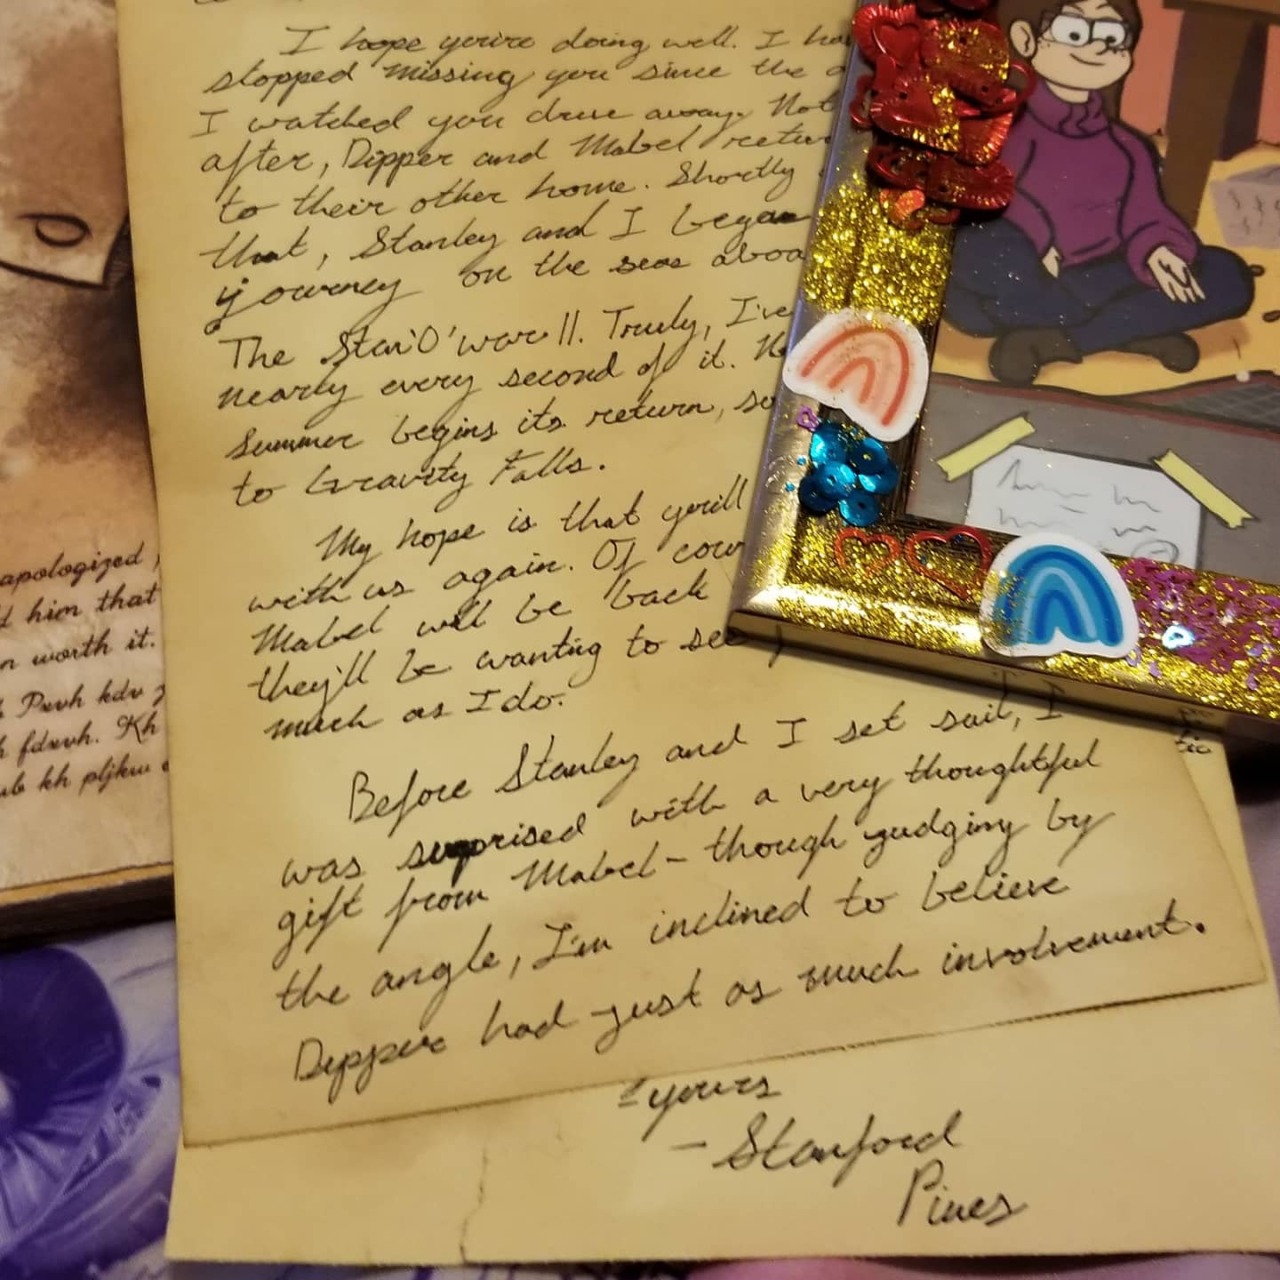 I hope you're doing well. I
stopped missing you since the
I watched you drive away. Not
after, Dipper and Mabel
to their other home. Shortly
that, Stanley and I began
journey on the seas
The Stan'O'war II. Truly, I've
nearly every second of it.
Summer begins its return,
to Gravity Falls.
My hope is that you'll
with us again. Of
Mabel will be back
they'll be wanting to see
much as I do.
Before Stanley and I set sail, I
was surprised with a very thoughtful
gift from Mabel - though judging by
the angle, I'm inclined to believe
Dipper had just as much involvement.
yours
- Stanford
Pines
apologized
him that
worth it.
Pxvh kdv
fdxvh. Kh
kh pljkw